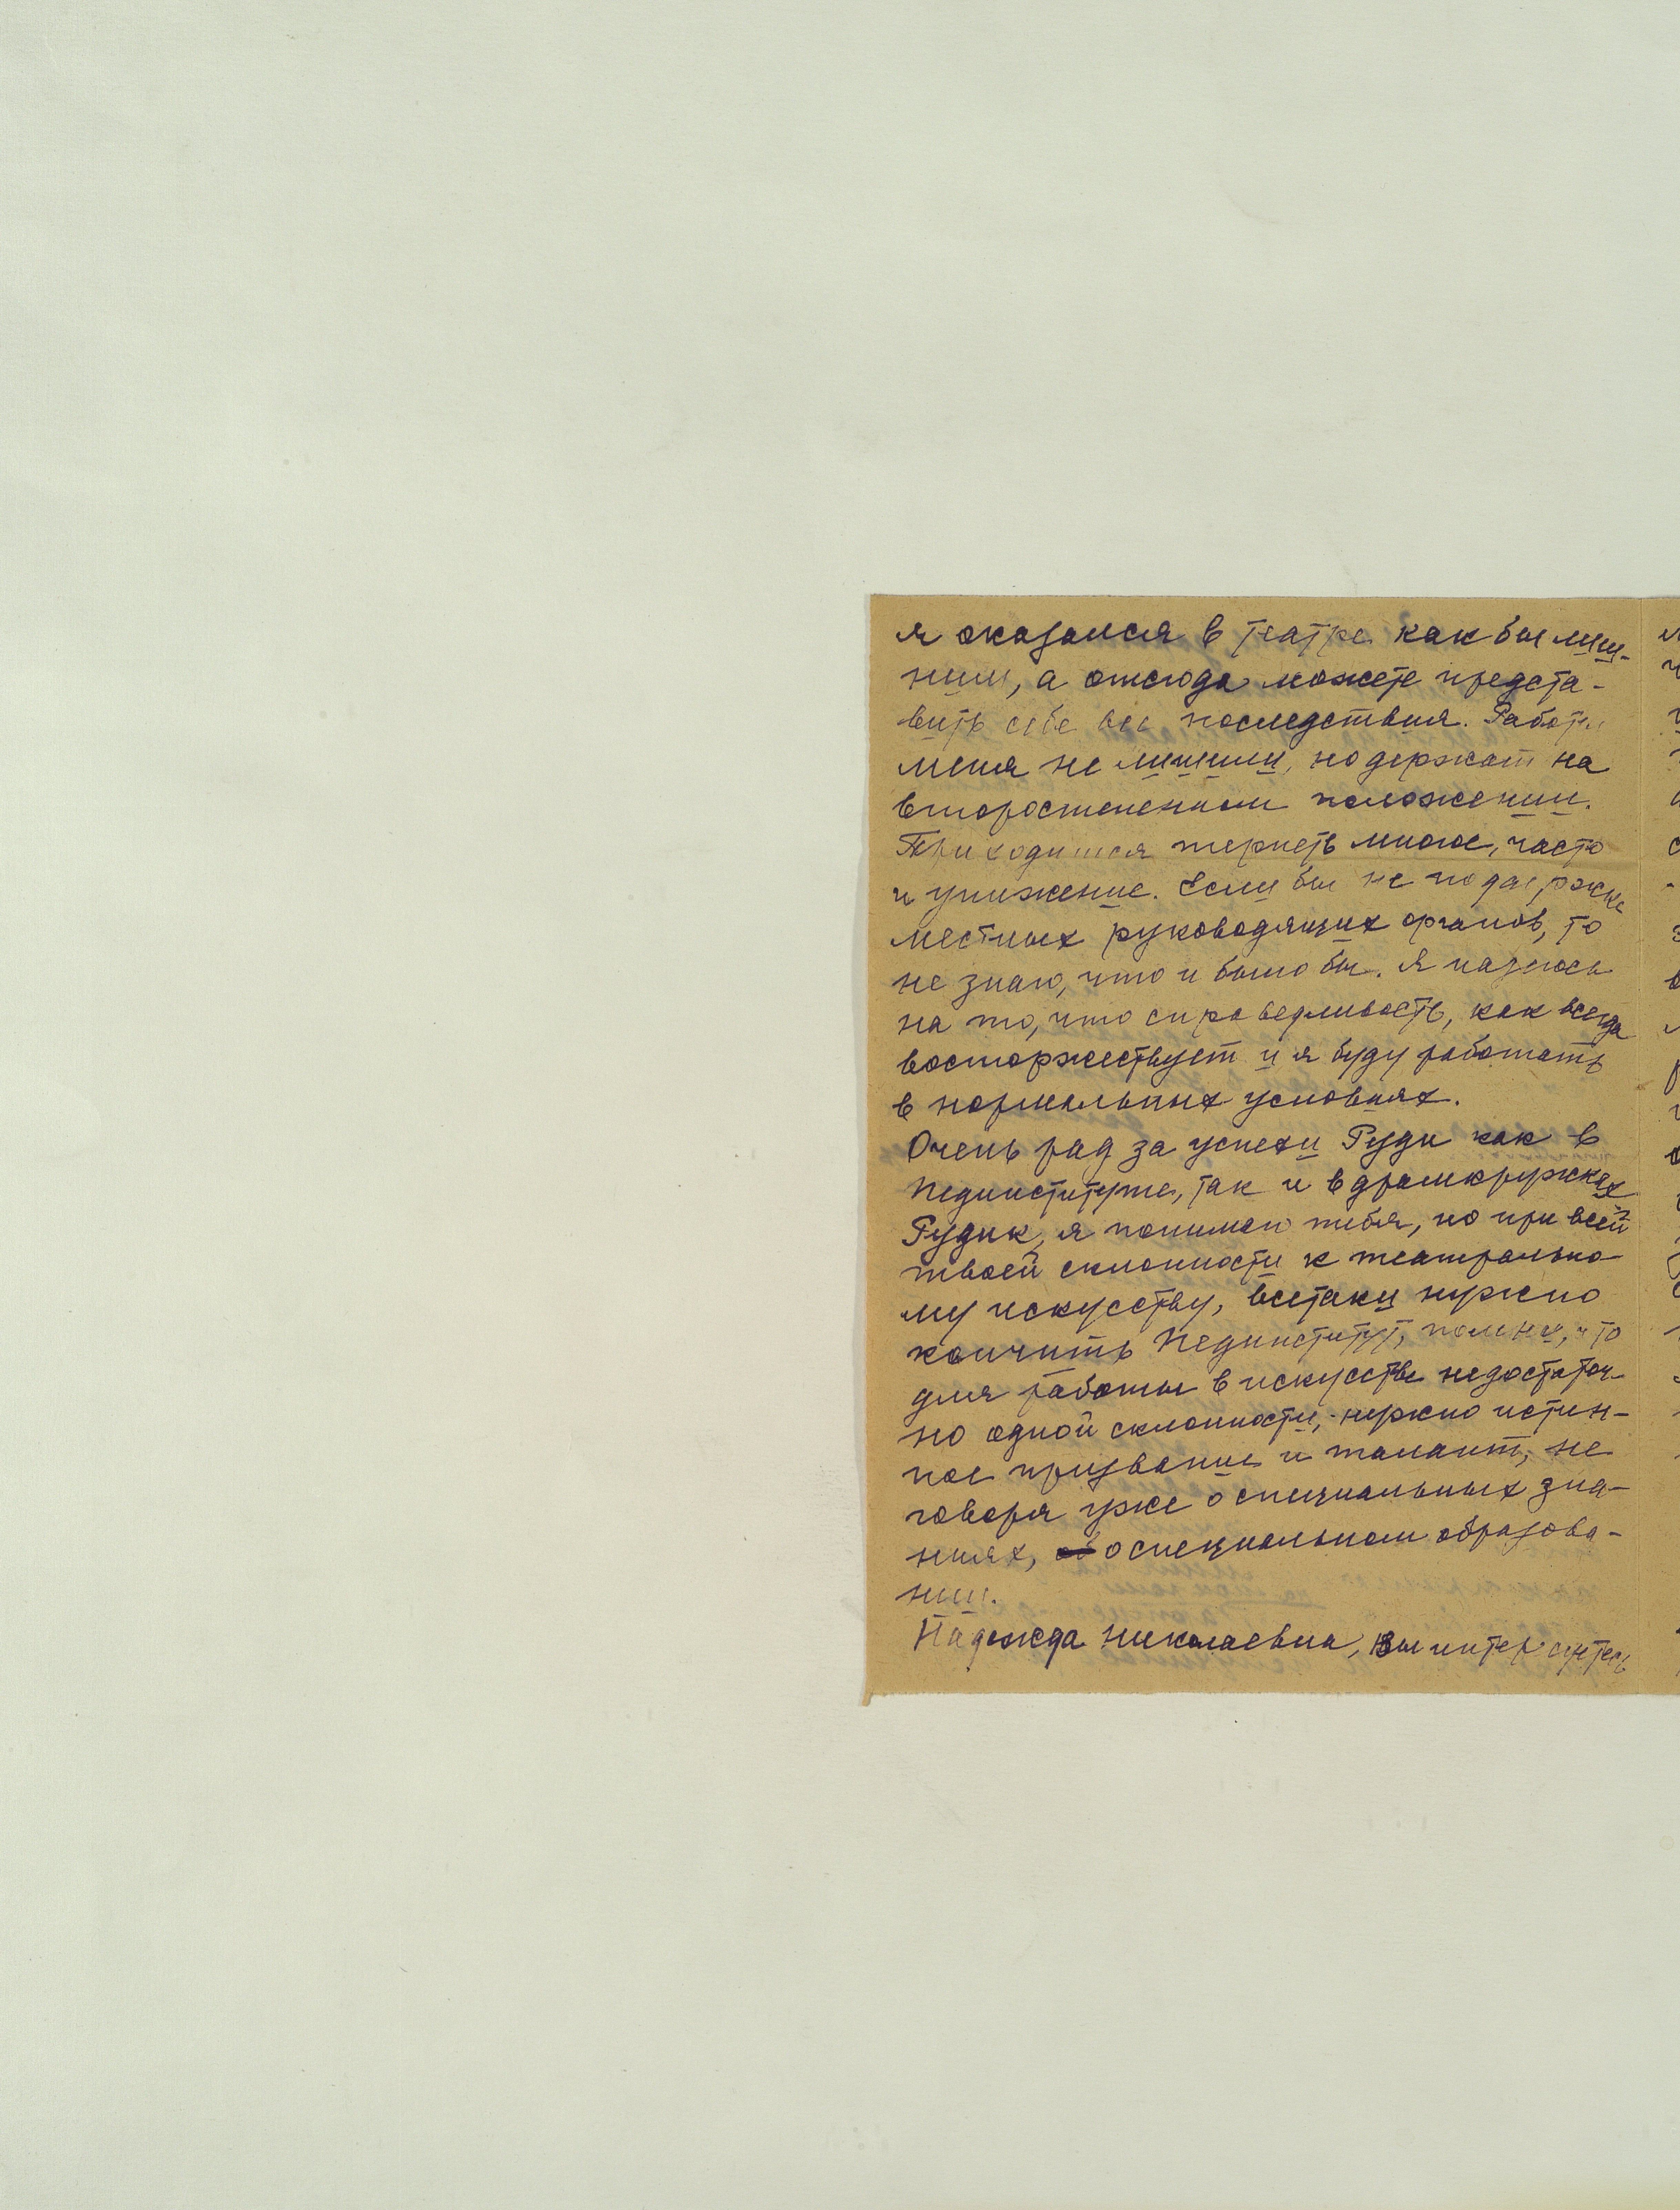 я оказался в театре как бы лиш-
ним, а отсюда можете предста-
вить себе все последствия. Работы
меня не лишили, но держат на
второстепенном положении.
Приходится терпеть многое, часто
и унижение. Если бы не поддержка
местных руководящих органов, то
не знаю, что и было бы. Я надеюсь
на то, что справедливость, как всегда
восторжествует и я буду работать
в нормальных условиях.
Очень рад за успехи Руди как в
Пединституте, так и в драмкружках
Рудик, я понимаю тебя, но при всей
твоей склонности к театрально-
му искусству, всетаки нужно
кончить Пединститут, помни, что
для работы в искусстве недостаточ-
но одной склонности, нужно истин-
ное призвание и талант, не
говоря уже о специальных зна-
ниях, о специальном образова-
нии.
Надежда Николаевна, Вы интересуетесь